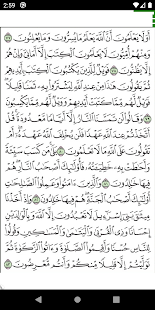 2:59
أَوَلَا يَعْلَمُونَ أَنَّ ٱللَّهَ يَعْلَمُ مَا يُسِرُّونَ وَمَا يُعْلِنُونَ
وَمِنْهُمْ أُمِّيُّونَ لَا يَعْلَمُونَ ٱلْكِتَٰبَ إِلَّآ أَمَانِيَّ وَإِنْ هُمْ
إِلَّا يَظُنُّونَ فَوَيْلٌ لِّلَّذِينَ يَكْتُبُونَ ٱلْكِتَٰبَ بِأَيْدِيهِمْ
ثُمَّ يَقُولُونَ هَٰذَا مِنْ عِندِ ٱللَّهِ لِيَشْتَرُوا۟ بِهِۦ ثَمَنًا قَلِيلًا
فَوَيْلٌ لَّهُم مِّمَّا كَتَبَتْ أَيْدِيهِمْ وَوَيْلٌ لَّهُم مِّمَّا يَكْسِبُونَ
وَقَالُوا۟ لَن تَمَسَّنَا ٱلنَّارُ إِلَّآ أَيَّامًا مَّعْدُودَةً قُلْ أَتَّخَذْتُمْ
عِندَ ٱللَّهِ عَهْدًا فَلَن يُخْلِفَ ٱللَّهُ عَهْدَهُۥٓ أَمْ
تَقُولُونَ عَلَى ٱللَّهِ مَا لَا تَعْلَمُونَ بَلَىٰ مَن كَسَبَ سَيِّئَةً
وَأَحَٰطَتْ بِهِۦ خَطِيٓـَٔتُهُۥ فَأُو۟لَٰٓئِكَ أَصْحَٰبُ ٱلنَّارِ هُمْ
فِيهَا خَٰلِدُونَ وَٱلَّذِينَ ءَامَنُوا۟ وَعَمِلُوا۟ ٱلصَّٰلِحَٰتِ
أُو۟لَٰٓئِكَ أَصْحَٰبُ ٱلْجَنَّةِ هُمْ فِيهَا خَٰلِدُونَ وَإِذْ أَخَذْنَا
مِيثَٰقَ بَنِىٓ إِسْرَٰٓءِيلَ لَا تَعْبُدُونَ إِلَّا ٱللَّهَ وَبِٱلْوَٰلِدَيْنِ
إِحْسَانًا وَذِى ٱلْقُرْبَىٰ وَٱلْيَتَٰمَىٰ وَٱلْمَسَٰكِينِ وَقُولُوا۟ لِلنَّاسِ
حُسْنًا وَأَقِيمُوا۟ ٱلصَّلَوٰةَ وَءَاتُوا۟ ٱلزَّكَوٰةَ ثُمَّ
تَوَلَّيْتُمْ إِلَّا قَلِيلًا مِّنكُمْ وَأَنتُم مُّعْرِضُونَ